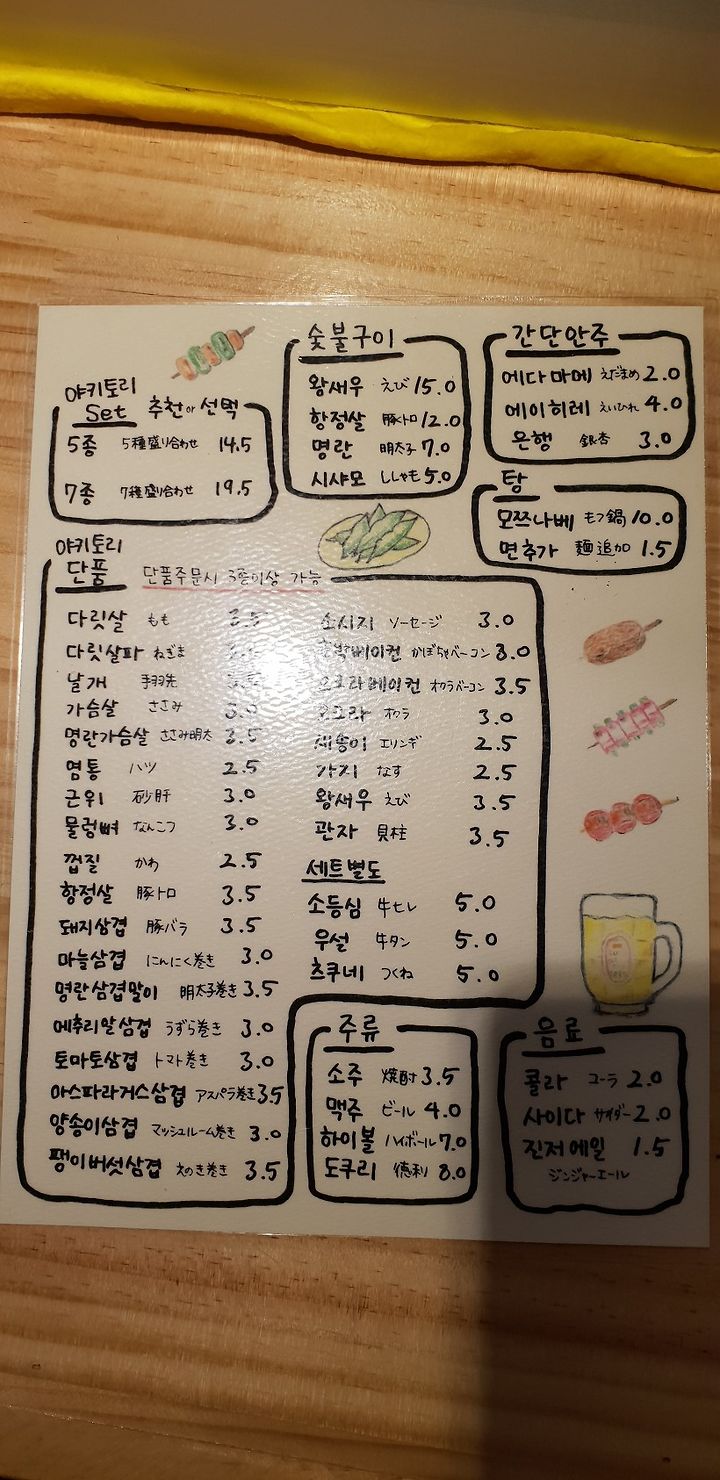 야키토리
Set 추천 or 선택
5종 5種盛り合わせ 14.5
7종 7種盛り合わせ 19.5
숯불구이
왕새우 えび 15.0
항정살 豚トロ 12.0
명란 明太子 7.0
시샤모 ししゃも 5.0
간단안주
에다마메 えだまめ 2.0
에이히레 えいひれ 4.0
은행 銀杏 3.0
탕
모쯔나베 もつ鍋 10.0
면추가 麺追加 1.5
야키토리
단품 단품주문시 3종이상 가능
다릿살 もも 3.5
다릿살파 ねぎま
날개 手羽先
가슴살 ささみ 3.0
명란가슴살 ささみ明太 3.5
염통 ハツ 2.5
근위 砂肝 3.0
물렁뼈 なんこつ 3.0
껍질 かわ 2.5
항정살 豚トロ 3.5
돼지삼겹 豚バラ 3.5
마늘삼겹 にんにく巻き 3.0
명란삼겹말이 明太子巻き 3.5
메추리알삼겹 うずら巻き 3.0
토마토삼겹 トマト巻き 3.0
아스파라거스삼겹 アスパラ巻き 3.5
양송이삼겹 マッシュルーム巻き 3.0
팽이버섯삼겹 えのき巻き 3.5
소시지 ソーセージ 3.0
호박베이컨 かぼちゃベーコン 3.0
오크라베이컨 オクラベーコン 3.5
오크라 オクラ 3.0
새송이 エリンギ 2.5
가지 なす 2.5
왕새우 えび 3.5
관자 貝柱 3.5
세트별도
소등심 牛ヒレ 5.0
우설 牛タン 5.0
츠쿠네 つくね 5.0
주류
소주 焼酎 3.5
맥주 ビール 4.0
하이볼 ハイボール 7.0
도쿠리 徳利 8.0
음료
콜라 コーラ 2.0
사이다 サイダー 2.0
진저에일 1.5
ジンジャーエール